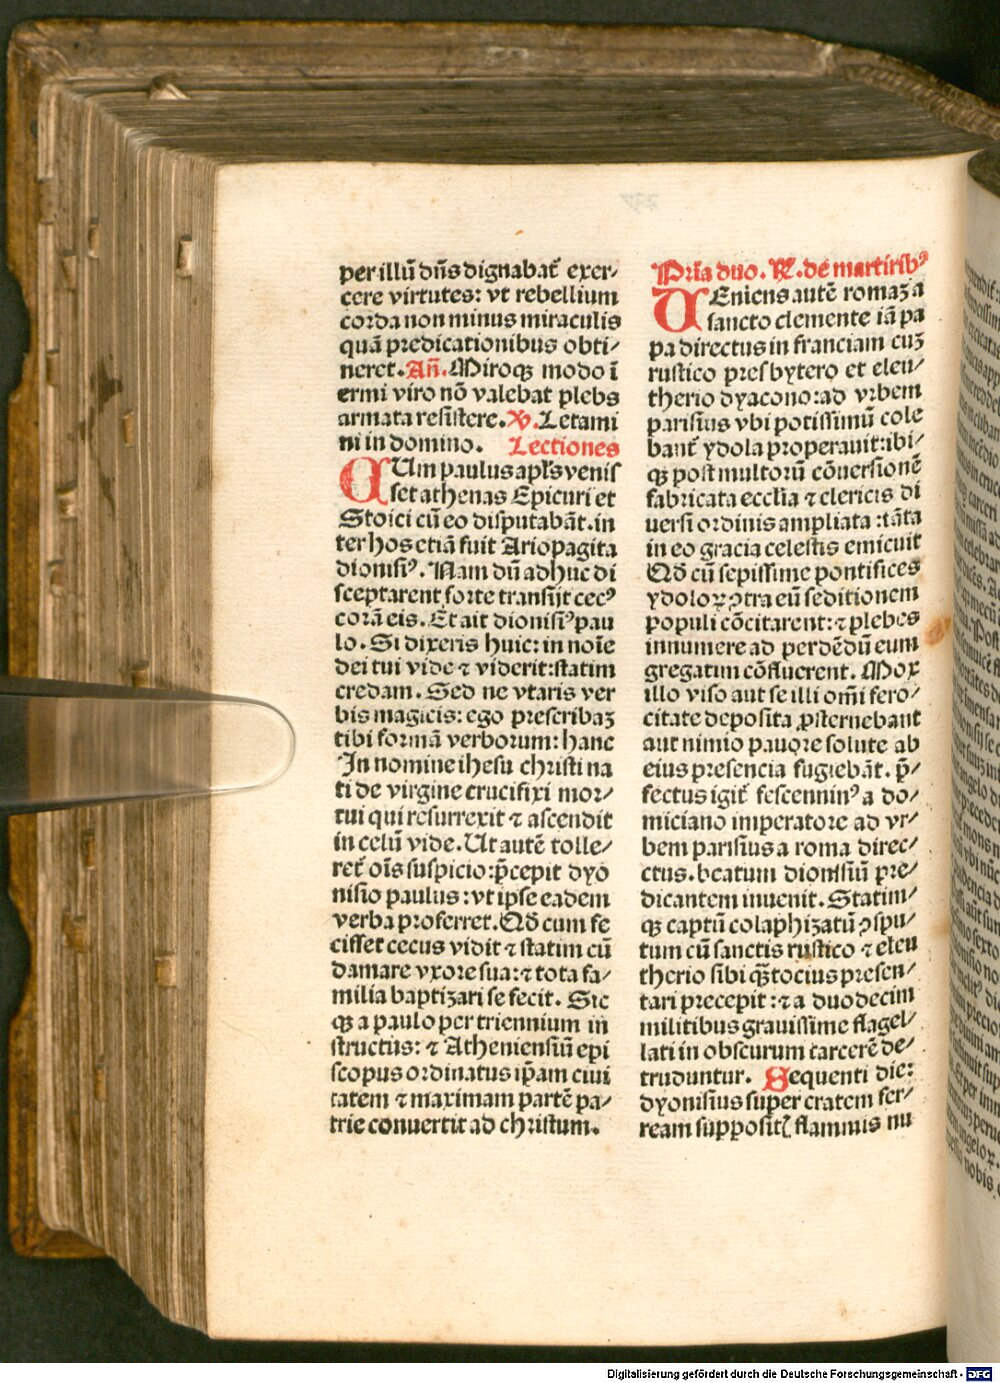 per illū dn̄s dignabat᷑ exer⸗
cere virtutes: vt rebellium
corda non minus miraculis
quā predicationibus obti⸗
neret. Añ. Miroqꝫ modo ī
ermi viro nō valebat plebs
armata resistere. ℣. Letami
ni in domino. Lectiones
CUm paulus apl̄s venis
set athenas Epicuri et
Stoici cū eo disputabāt. in
ter hos etiā fuit Ariopagita
dionisiꝰ. Nam dū adhuc di
sceptarent forte transijt cecꝰ
corā eis. Et ait dionisiꝰ pau
lo. Si dixeris huic: in noīe
dei tui vide ⁊ viderit: statim
credam. Sed ne vtaris ver
bis magicis: ego prescribaꝫ
tibi formā verborum: hanc
In nomine ihesu christi na
ti de virgine crucifixi mor⸗
tui qui resurrexit ⁊ ascendit
in celū vide. Ut autē tolle⸗
ret᷑ oīs suspicio: p̄cepit dyo
nisio paulus: vt ipse eadem
verba proferret. Qd̄ cum fe
cisset cecus vidit ⁊ statim cū
damare vxore sua: ⁊ tota fa⸗
milia baptizari se fecit. Sic
qꝫ a paulo per triennium in
structus: ⁊ Atheniensiū epi
scopus ordinatus ip̄am ciui
tatem ⁊ maximam partē pa⸗
trie conuertit ad christum.
Pr̄ia duo. ℟. de martiribꝰ
UEniens autē romaꝫ a
sancto clemente iā pa
pa directus in franciam cuꝫ
rustico presbytero et eleu⸗
therio dyacono: ad vrbem
parisius vbi potissimū cole
bant᷑ ydola properauit: ibi⸗
qꝫ post multorū cōuersionē
fabricata ecclīa ⁊ clericis di
uersi ordinis ampliata: tāta
in eo gracia celestis emicuit
Qd̄ cū sepissime pontifices
ydoloꝝ ꝯtra eū seditionem
populi cōcitarent: ⁊ plebes
innumere ad perdēdū eum
gregatim cōfluerent. Mox
illo viso aut se illi om̄i fero⸗
citate deposita ꝓsternebant
aut nimio pauore solute ab
eius presencia fugiebāt. p̄⸗
fectus igit᷑ fescenninꝰ a do⸗
miciano imperatore ad vr⸗
bem parisius a roma direc⸗
ctus. beatum dionisiū pre⸗
dicantem inuenit. Statim⸗
qꝫ captū colaphizatū ꝯspu⸗
tum cū sanctis rustico ⁊ eleu
therio sibi qꝫtocius presen⸗
tari precepit: ⁊ a duodecim
militibus grauissime flagel⸗
lati in obscurum carcerē de⸗
truduntur. Sequenti die:
dyonisius super cratem fer⸗
ream supposit᷑ flammis nu